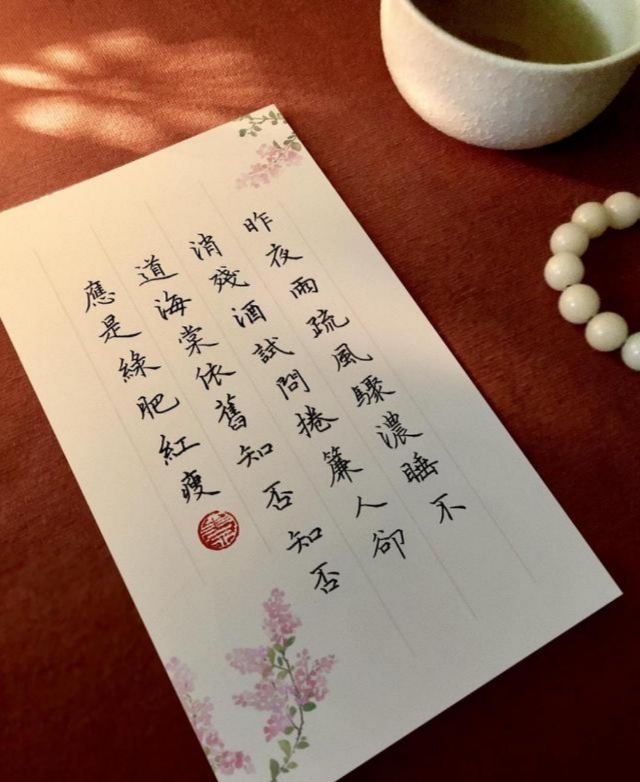 昨夜雨疏風驟濃睡不
消殘酒試問捲簾人卻
道海棠依舊知否知否
應是綠肥紅瘦